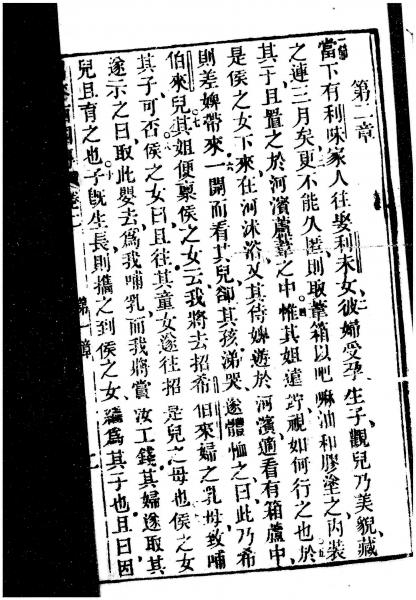 第二章
當下有利味家人往娶利未女彼婦受孕生子觀兒乃美貌藏
之連三月矣更不能久匿則取葦箱以吧嘛油和膠塗之內裝
其子且置之於河濱蘆葦之中惟其姐遠跕視如何行之也於
是侯之女下來在河沐浴又其侍婢遊於河濱適看有箱蘆中
則差婢帶來一開而看其兒卻其孩涕哭遂體恤之曰此乃希
伯來兒其姐便稟侯之女云我將去招希伯來婦之乳母致哺
其子可否侯之女曰且往其童女遂往招是兒之母也侯之女
遂示之曰取此嬰去為我哺乳而我將賞汝工錢其婦遂取其
兒且育之也子既生長則攜之到侯之女䌫為其子也且曰因
卷二
第二章
二